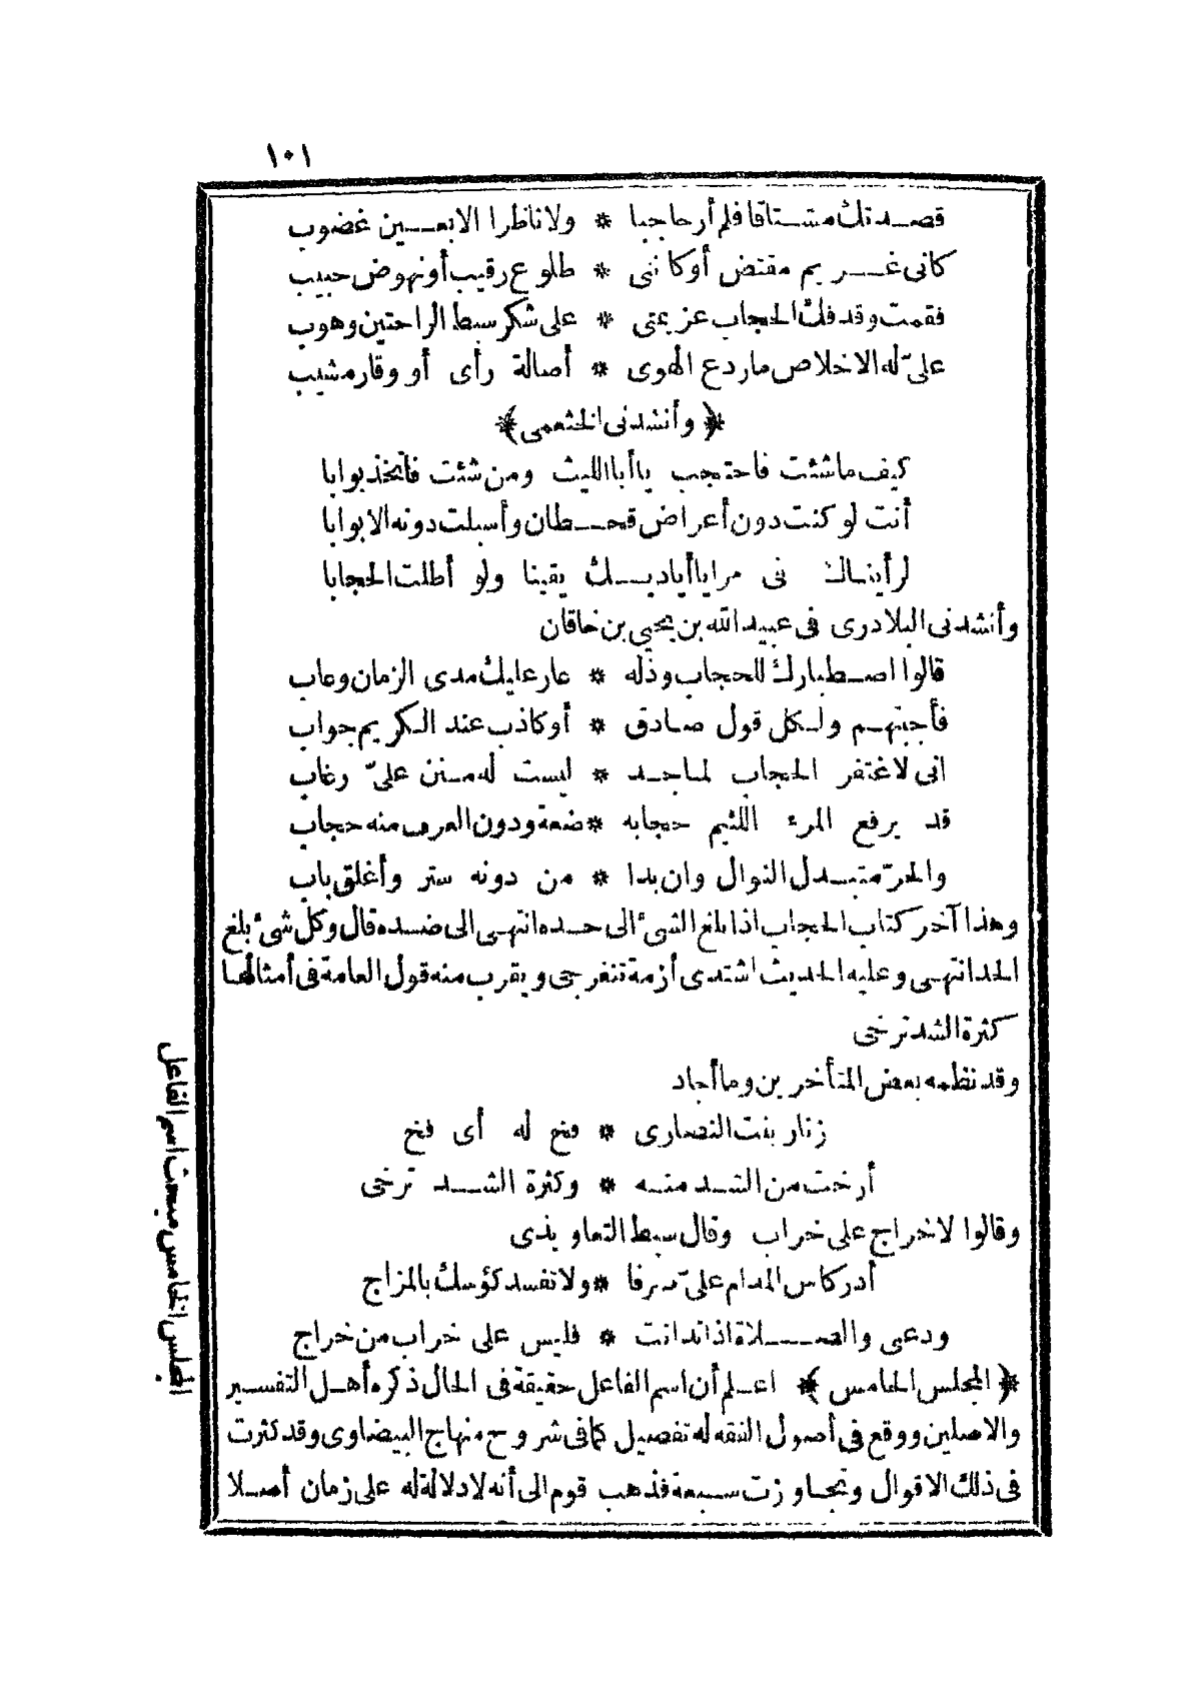 ١٠١
قصدتك مشتاقا فلم أر حاجبا * ولا ناظرا الا بعين غضوب
كانى غريم مقتض أوكاننى * طلوع رقيب أو نهوض حبيب
فقمت وقد فلّ الحجاب عزيمتى * على شكر سبط الراحتين وهوب
علىّ له الاخلاص ماردع الهوى * أصالة رأى أو وقار مشيب
﴿ وأنشدنى الخثعمى ﴾
كيف ماشئت فاحتجب ياأبا الليث ومن شئت فاتخذ بوابا
أنت لو كنت دون أعراض قحطان وأسبلت دونه الابوابا
لرأيناك فى مرايا أياديك يقينا ولو أطلت الحجابا
وأنشدنى البلادرى فى عبيد الله بن يحيى بن خاقان
قالوا اصطبارك للحجاب وذله * عار عليك مدى الزمان وعاب
فأجبتهم ولكل قول صادق * أوكاذب عند الكريم جواب
انى لاغتفر الحجاب لماجد * ليست له منن علىّ رغاب
قد يرفع المرء اللئيم حجابه * ضعة ودون العرف منه حجاب
والحرّ مبتذل النوال وان بدا * من دونه ستر وأغلق باب
وهذا آخر كتاب الحجاب اذا بلغ الشئ الى حده انتهى الى ضده قال وكل شئ بلغ
الحد انتهى وعليه الحديث اشتدى أزمة تنفرجى ويقرب منه قول العامة فى أمثالها
كثرة الشد ترخى
وقد نظمه بعض المتأخرين وما أجاد
زنار بنت النصارى * فخ له أى فخ
أرخت من الشد منه * وكثرة الشد ترخى
وقالوا لا خراج على خراب وقال سبط التعاويذى
أدر كاس المدام علىّ صرفا * ولا تفسد كؤسك بالمزاج
ودعنى والصلاة اذا تدانت * فليس على خراب من خراج
﴿ المجلس الخامس ﴾ اعلم أن اسم الفاعل حقيقة فى الحال ذكره أهل التفسير
والاصلين ووقع فى أصول الفقه له تفصيل كما فى شروح منهاج البيضاوى وقد كثرت
فى ذلك الاقوال وتجاوزت سبعة فذهب قوم الى أنه لا دلالة له على زمان أصلا
المجلس الخامس مبحث اسم الفاعل